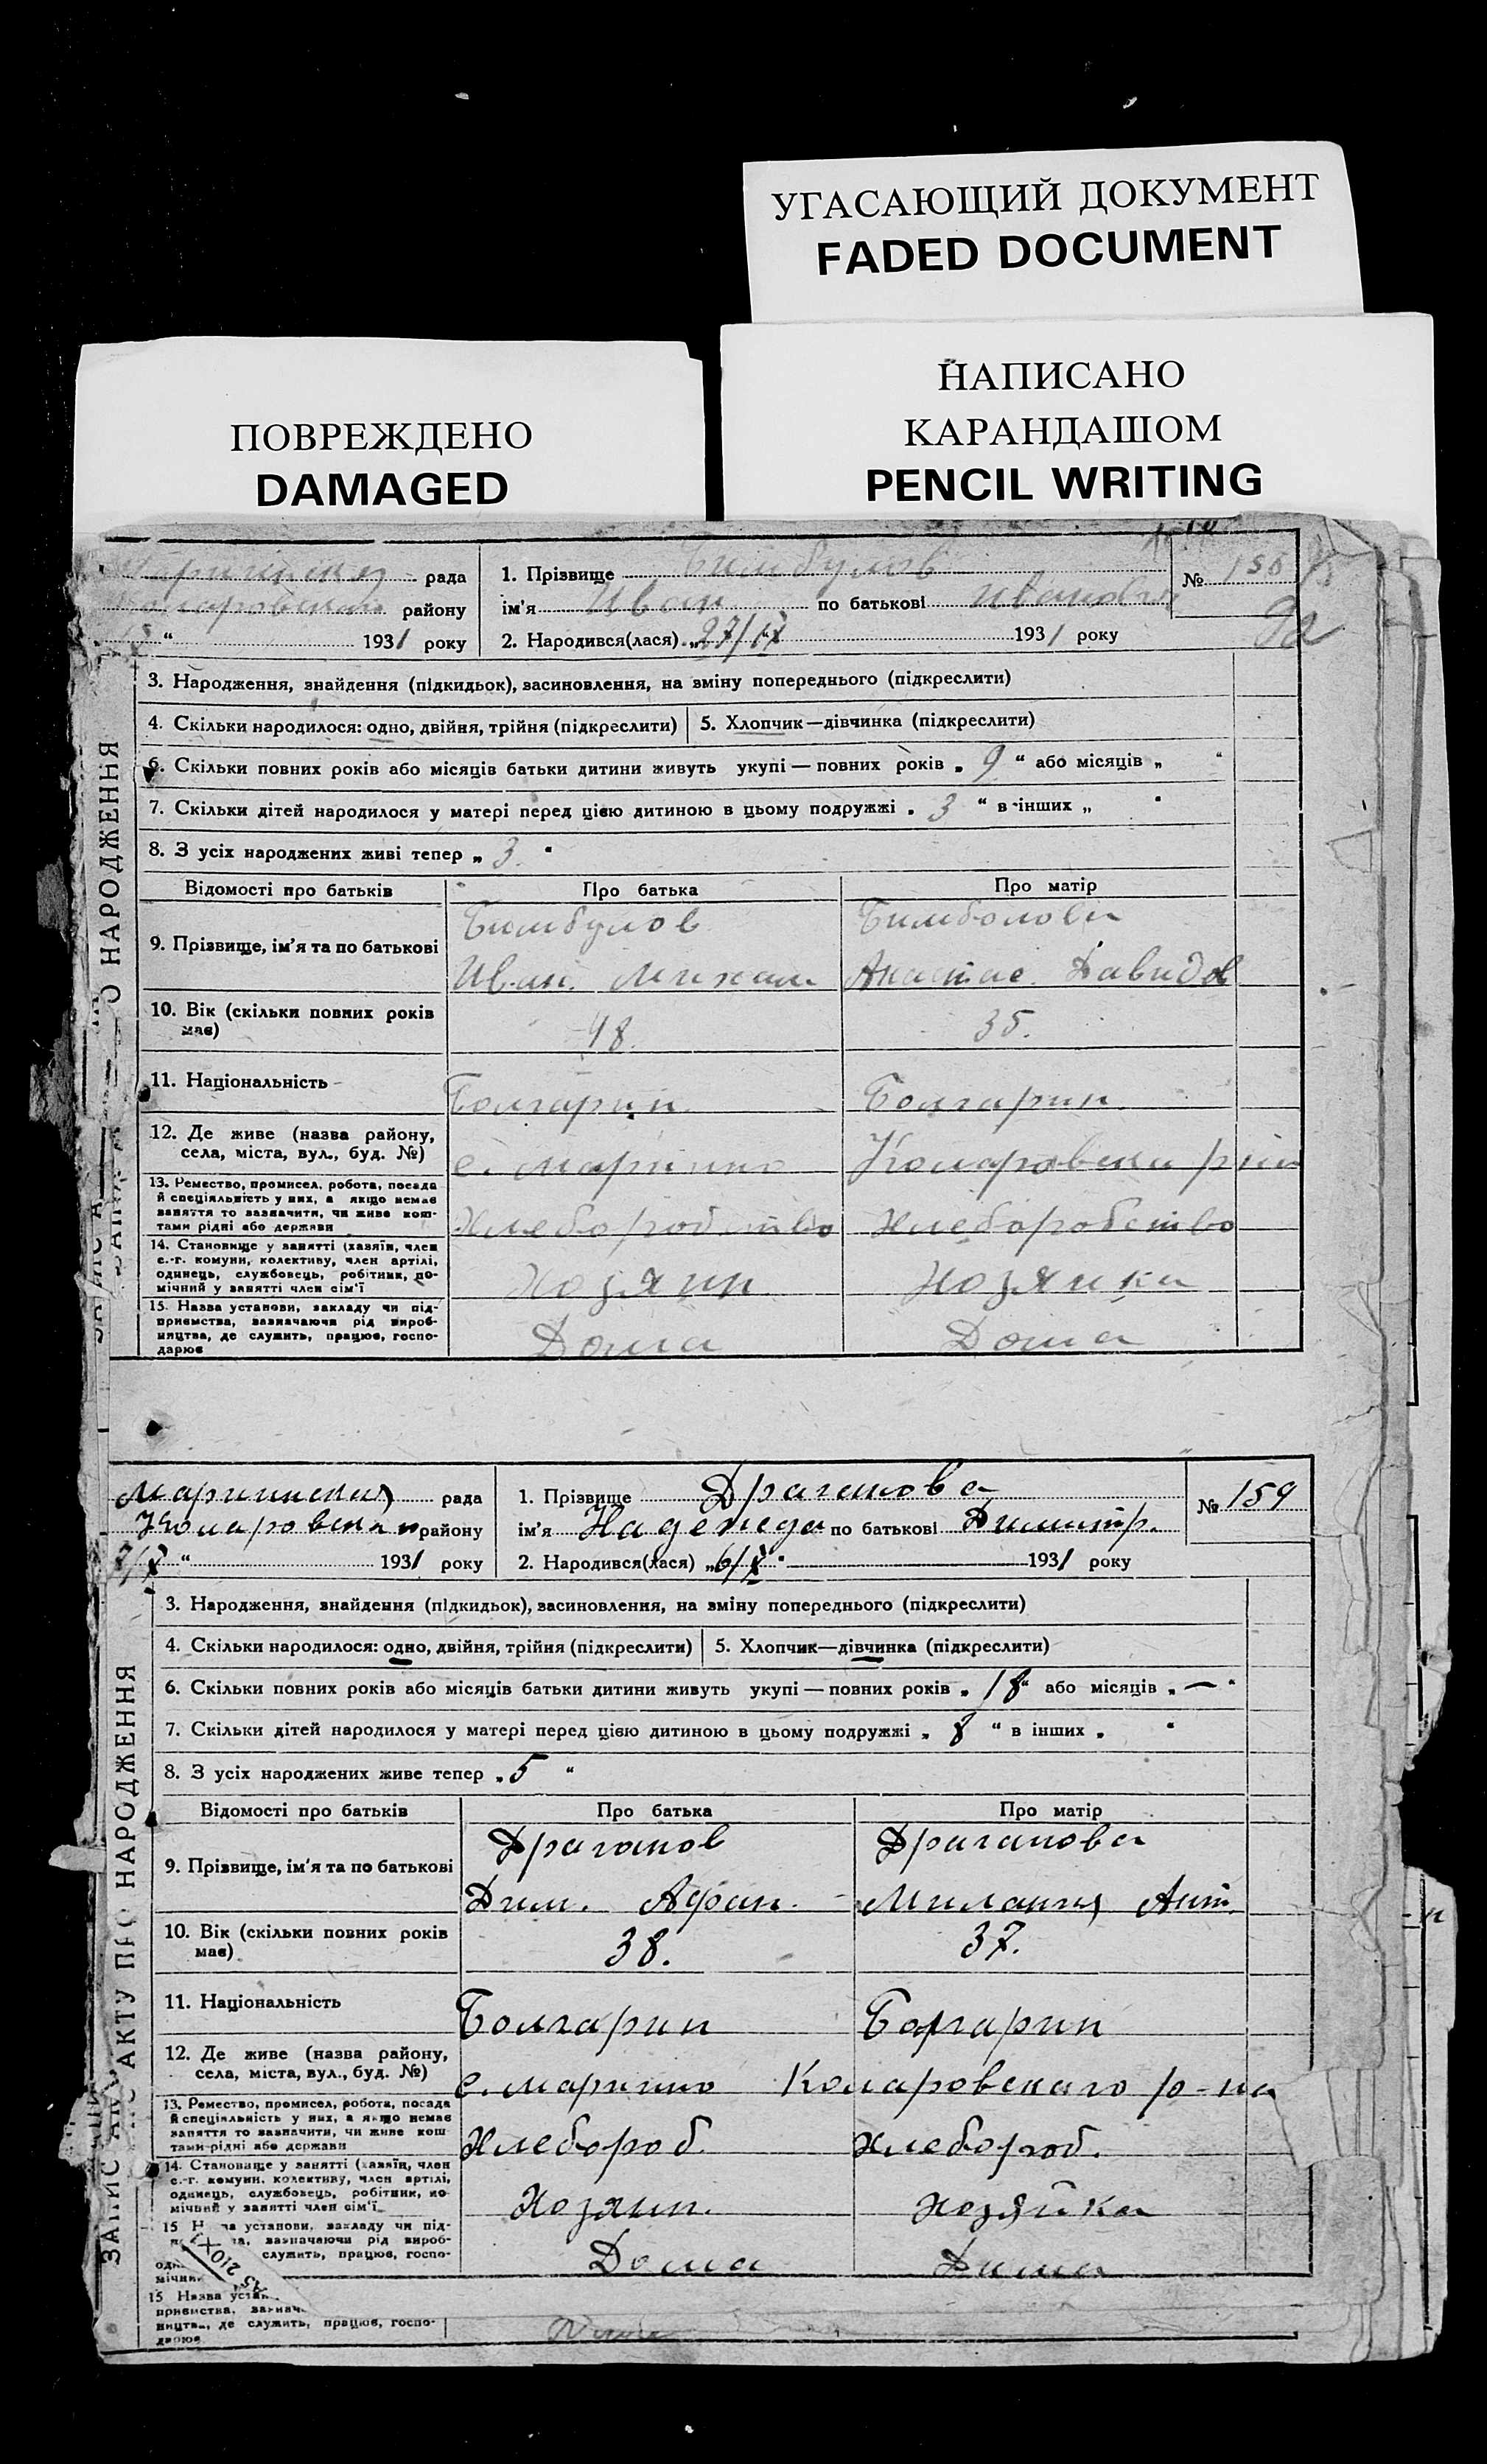 УГАСАЮЩИЙ ДОКУМЕНТ
FADED DOCUMENT
ПОВРЕЖДЕНО
DAMAGED
НАПИСАНО
КАРАНДАШОМ
PENCIL WRITING
рада
району
1931 року
1. Прізвище Бимбулов
ім'я Иван по батькові Иванович
2. Народився(лася) „27/IX 1931 року
№ 158
3. Народження, знайдення (підкидьок), засиновлення, на зміну попереднього (підкреслити)
4. Скільки народилося: одно, двійня, трійня (підкреслити)
5. Хлопчик—дівчинка (підкреслити)
6. Скільки повних років або місяців батьки дитини живуть укупі — повних років „ 9 “ або місяців „ “
7. Скільки дітей народилося у матері перед цією дитиною в цьому подружжі „ 3 “ в інших „ “
8. З усіх народжених живі тепер „ 3. “
Відомості про батьків Про батька Про матір
9. Прізвище, ім'я та по батькові
Бимбулов Бимболова
Иван. Михаил Анастас. Давидов
10. Вік (скільки повних років має)
48. 35.
11. Національність
Болгарин Болгарин
12. Де живе (назва району,
села, міста, вул., буд. №)
с. Марьино Коларовски р
13. Ремество, промисел, робота, посада
й спеціяльність у них, а якщо немає
заняття то зазначити, чи живе кош-
тами рідні або держави
Хлеборобство Хлеборобство
14. Становище у занятті (хазяїн, член
с.-г. комуни, колективу, член артілі,
одинець, службовець, робітник, по-
мічний у занятті член сім'ї
Хозяин. Хозяйка
15. Назва установи, закладу чи під-
приємства, зазначаючи рід вироб-
ництва, де служить, працює, госпо-
дарює
Дома Дома
НАРОДЖЕННЯ
рада
Коларовский району
7/X “ 1931 року
1. Прізвище Драганова
ім'я Надежда по батькові Димитр.
2. Народився(лася) „6/X“ 1931 року
№ 159
3. Народження, знайдення (підкидьок), засиновлення, на зміну попереднього (підкреслити)
4. Скільки народилося: одно, двійня, трійня (підкреслити)
5. Хлопчик—дівчинка (підкреслити)
6. Скільки повних років або місяців батьки дитини живуть укупі — повних років „ 18“ або місяців „ — “
7. Скільки дітей народилося у матері перед цією дитиною в цьому подружжі „ 8 “ в інших „ “
8. З усіх народжених живе тепер „ 5 “
Відомості про батьків Про батька Про матір
9. Прізвище, ім'я та по батькові
Драганов Драганова
Дим. Афан. Милания Ант.
10. Вік (скільки повних років
має)
38. 37.
11. Національність
Болгарин Болгарин
12. Де живе (назва району,
села, міста, вул., буд. №)
с. Марьино Коларовского р-на
13. Ремество, промисел, робота, посада
й спеціяльність у них, а якщо немає
заняття то зазначити, чи живе кош
тами рідні або держави
Хлебороб. Хлебороб.
14. Становище у занятті (хазяїн, член
с.-г. комуни, колективу, член артілі,
одинець, службовець, робітник, по-
мічний у занятті член сім'ї
Хозяин. Хозяйка
15 установи, закладу чи під-
зазначаючи рід вироб-
служить, працює, госпо-
Дома Дома
15 Назва
приємства,
де служить, працює, госпо-
дарює
ЗАПИС АКТУ ПРО НАРОДЖЕННЯ